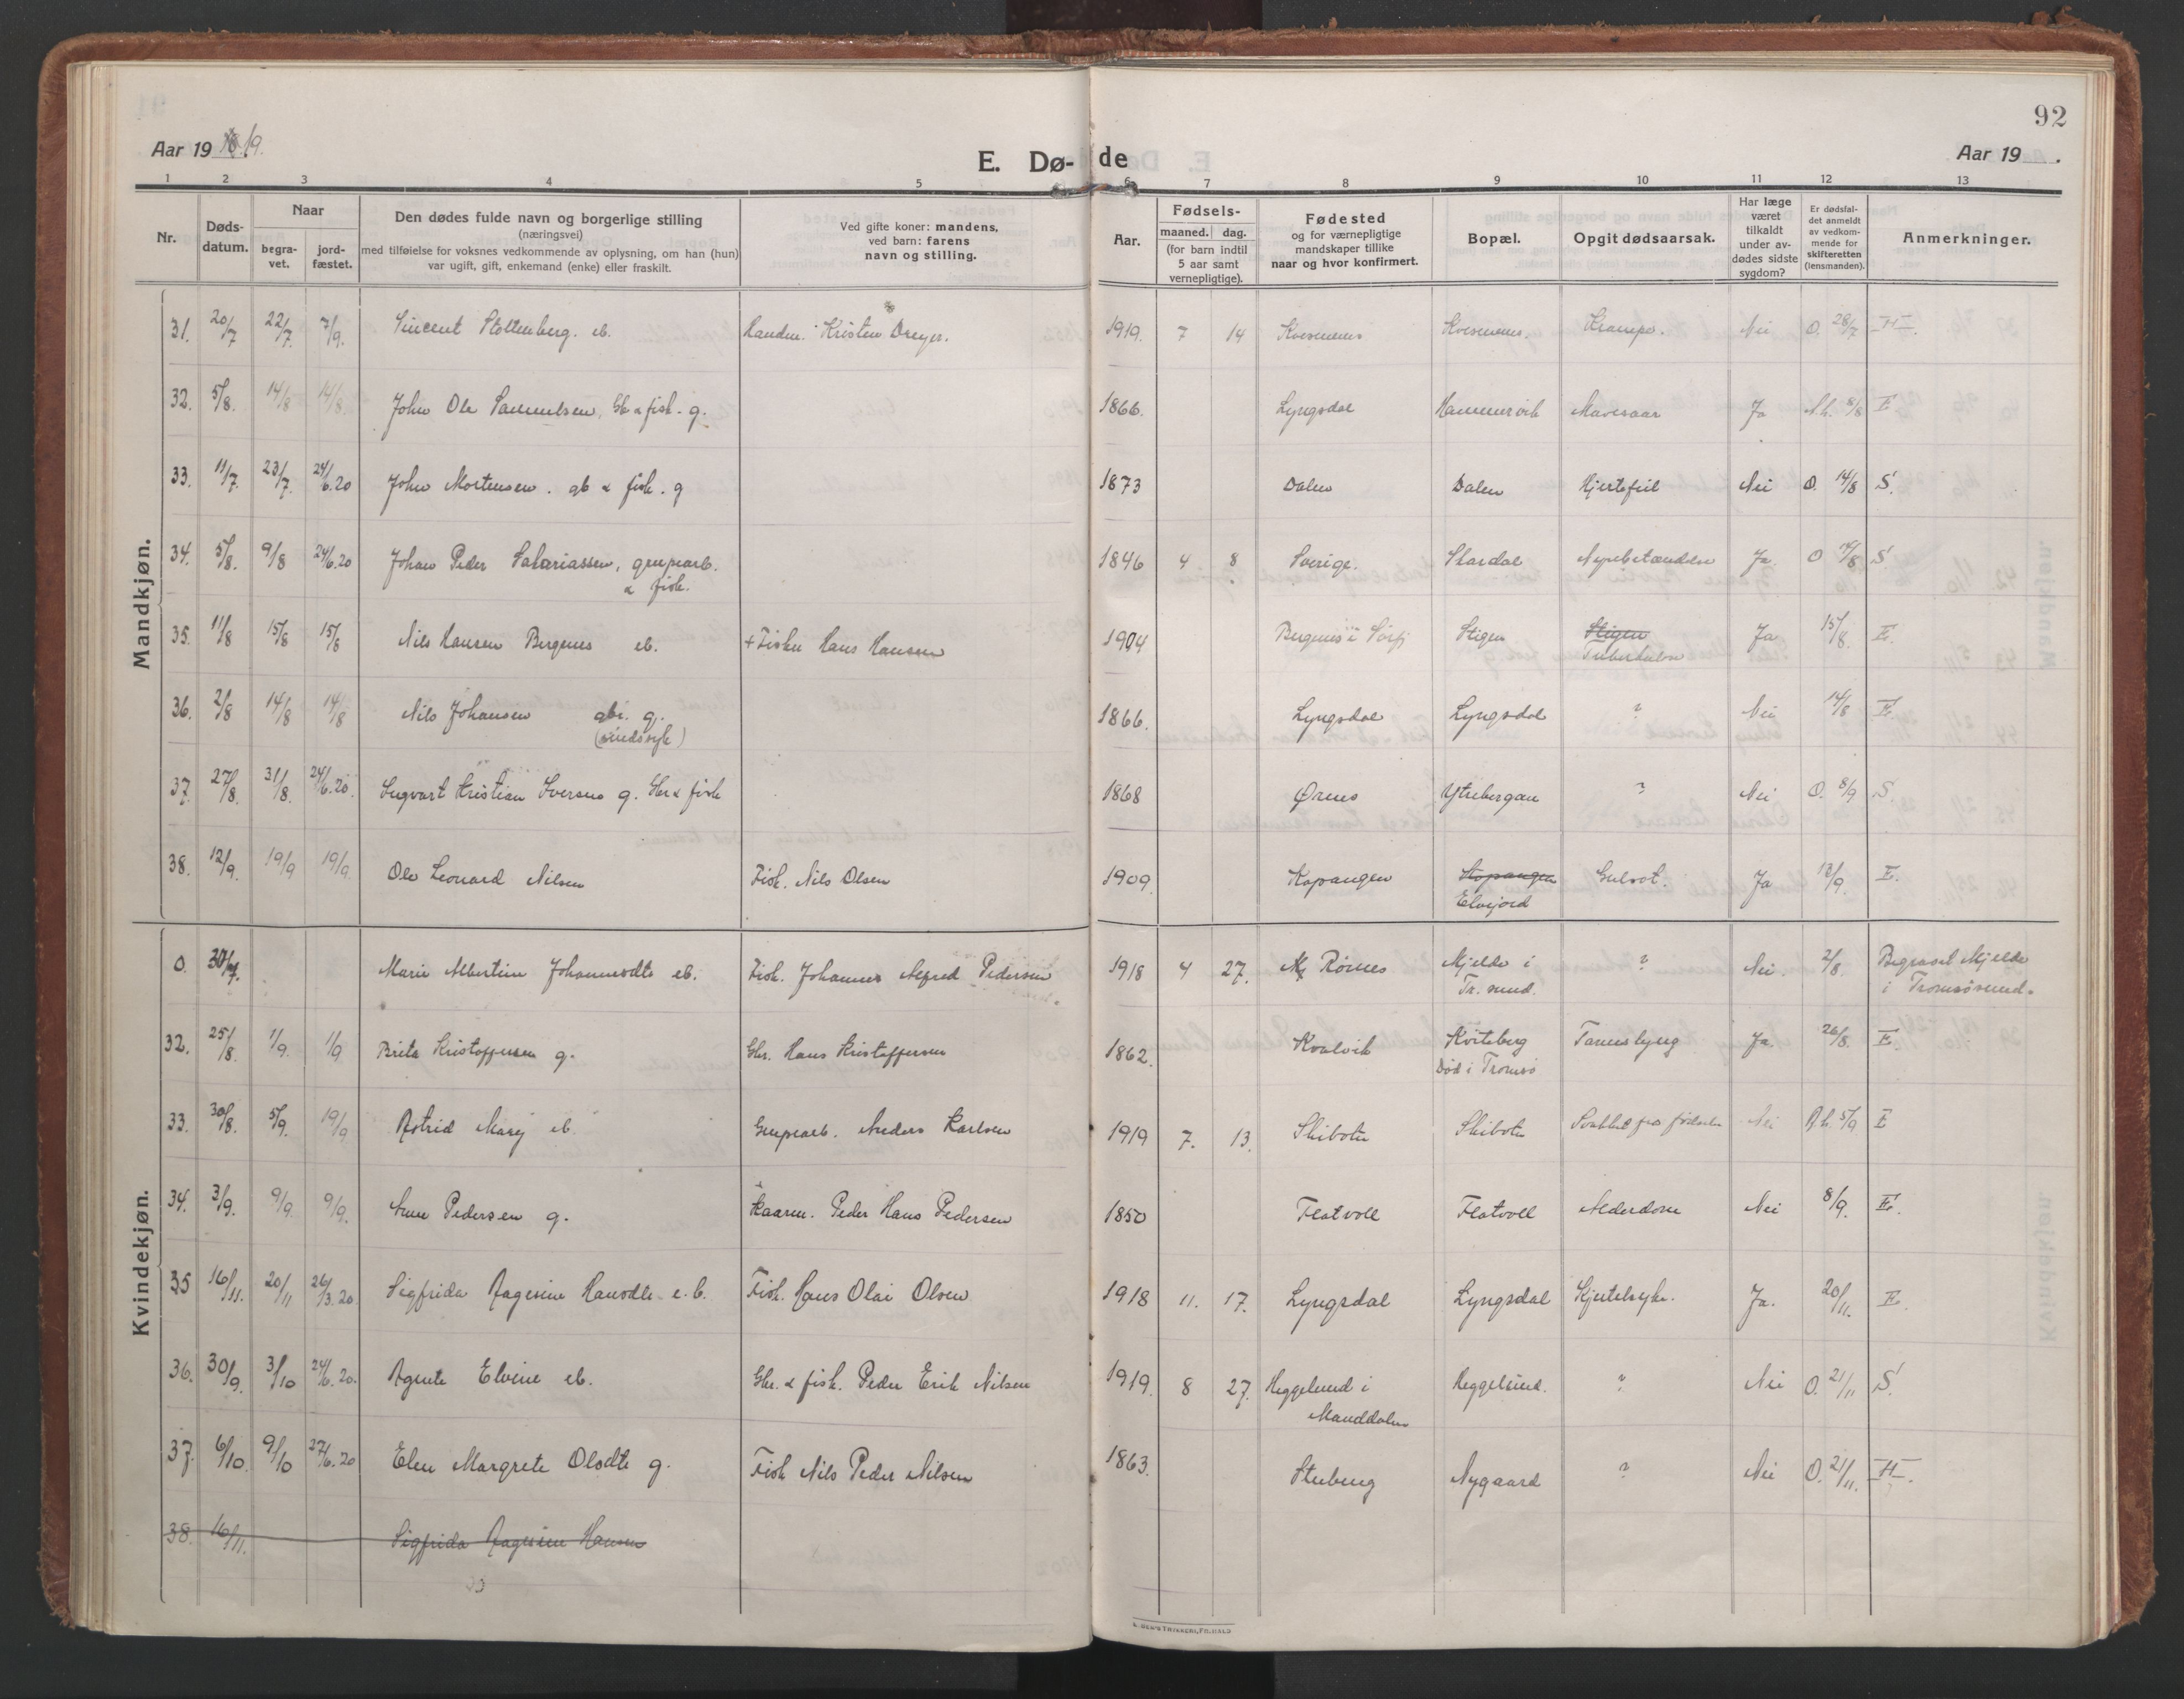 92
Aar 19 19.
E. Dø- de
Aar 19
1 2 3 4 5 6 7 8 9 10 11 12 13
Nr.
Døds-
datum.
Naar
begra-
vet.
jord-
fæstet.
Den dødes fulde navn og borgerlige stilling
(næringsvei)
med tilføielse for voksnes vedkommende av oplysning, om han (hun)
var ugift, gift, enkemand (enke) eller fraskilt.
Ved gifte koner: mandens,
ved barn: farens
navn og stilling.
Aar.
Fødsels-
maaned. dag.
(for barn indtil
5 aar samt
vernepligtige).
Fødested
og for værnepligtige
mandskaper tillike
naar og hvor konfirmert.
Bopæl.
Opgit dødsaarsak.
Har læge
været
tilkaldt
under av-
dødes sidste
sygdom?
Er dødsfal-
det anmeldt
av vedkom-
mende for
skifteretten
(lensmanden).
Anmerkninger.
Mandkjøn.
31. 20/7 22/7. 7/9. Stoltenberg. eb. Kristen Dreyer. 1919. 7 14 Krampe. Nei O. 28/7 H.
32. 5/8. 14/8 14/8. John Ole Samuelsen, Gbr & fisk. g. 1866. Lyngsdal Hammervik Mavesaar Ja 8/8 E
33. 11/7. 23/7. 24/6.20 John Mortensen. gb & fisk. g 1873 Dalen Dalen Hjertefeil Nei O. 14/8 S.
34. 5/8. 9/8 24/6.20 Johan Peder Sakariassen, grupearb.
& fisk. 1846 4 8 Sverige. Skardal Nyrebetændelse Ja. O 14/8 S
35. 11/8 15/8 15/8 Nils Hansen Bergenes eb. + Fisker Hans Hansen 1904 Bergenes i Sørfj Stigen Stigen
Tuberkulose Ja 15/8. E.
36. 2/8 14/8 14/8 Nils Johansen gbr. g.
(sindssyk) 1866. Lyngsdal Lyngsdal ? Nei 14/8 E.
37. 27/8. 31/8. 24/6.20. Sigvart Kristian Iversen g. Gbr & fisk 1868 Ørnes Ytrebergan ? Nei O. 8/9 S.
38. 12/9. 19/9 19/9. Ole Leonard Nilsen Fisk. Nils Olsen 1909. Kopangen Kopangen
Elvejord Gulsot. Ja 13/9. E.
Kvindekjøn.
0. 30/7. Marie Albertine Johannesdtr eb. Fisk. Johannes Alfred Pedersen 1918 4 27. Rørnes Mjelde i
Tr. sund. ? Nei. 2/8. Begravet Mjelde
i Tromsøsund.
32. 25/8. 1/9. 1/9 Brita Kristoffersen g. Gbr. Hans Kristoffersen 1862. Kvalvik Kviteberg
Død i Tromsø Tarmslyng Ja. 26/8. E.
33. 30/8. 5/9. 19/9 Astrid Marij eb. Grupearb. Anders Karlsen 1919 7. 13. Skibotn Skibotn Svakhet fra fødselen Nei 5/9 E
34. 3/9. 9/9. 9/9. Anne Pedersen g. Kaarm. Peder Hans Pedersen 1850 Flatvoll Flatvoll Alderdom Nei 8/9. E.
35 16/11. 20/11 26/3.20 Sigfrida Aagesine Hansdtr e.b. Fisk. Hans Olai Olsen 1918 11. 17. Lyngsdal Lyngsdal Kjertelsyke. Ja. 20/11. E.
36. 30/9. 3/10 24/6.20. Agnete Elvine eb. Gbr. & fisk. Peder Erik Nilsen 1919. 8 27. Heggelund i
Manddalen Heggelund. ? Nei O. 21/11 S.
37. 6/10. 9/10 27/6.20 Elen Margrete Olsdtr g. Fisk Nils Peder Nilsen 1863. Steberg Nygaard ? Nei O. 21/11. H.
38. 16/11. Sigfrida Aagesine Hansen